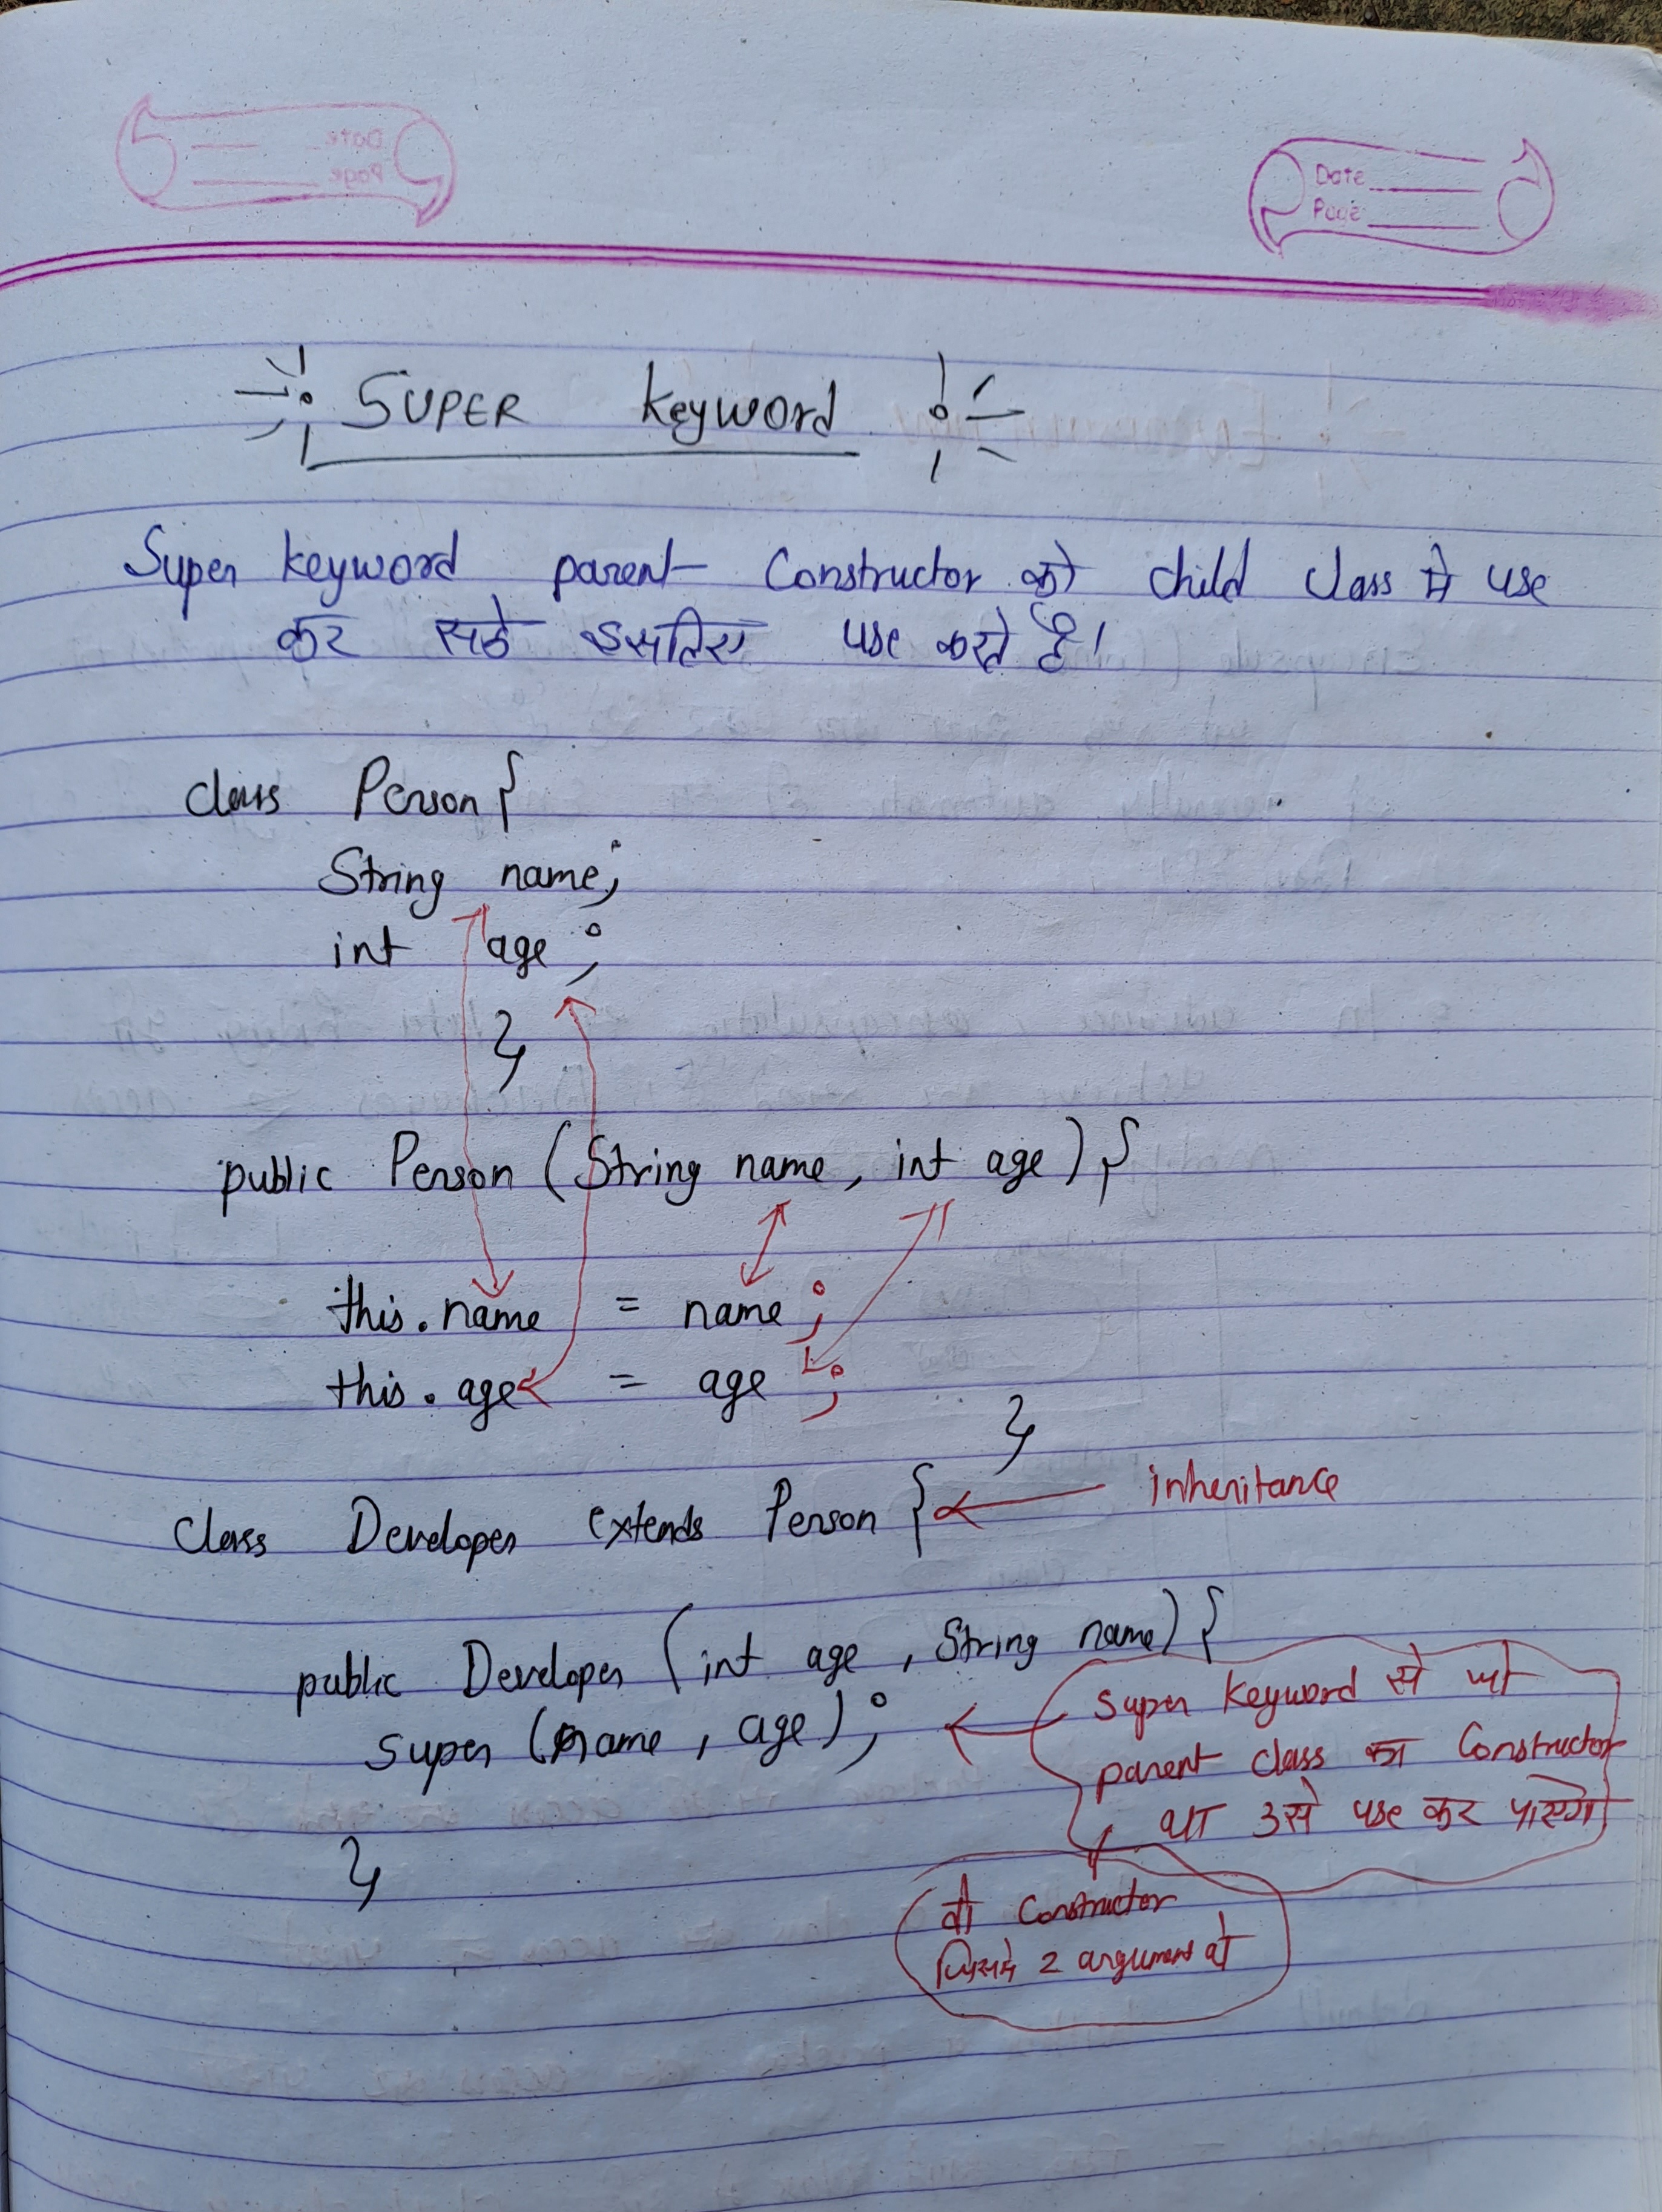 Date
Page
SUPER keyword
Super keyword parent Constructor को child class मे use
कर सके इसलिए use करते है।
class Person {
String name;
int age ;
}
public Person (String name, int age) {
this.name = name ;
this.age = age ;
}
class Developer extends Person { inheritance
public Developer (int age , String name) {
super (name , age) ;
}
Super keyword से
parent class का Constructor
था उसे use कर पाएंगे
वो Constructor
जिसमे 2 argument थे